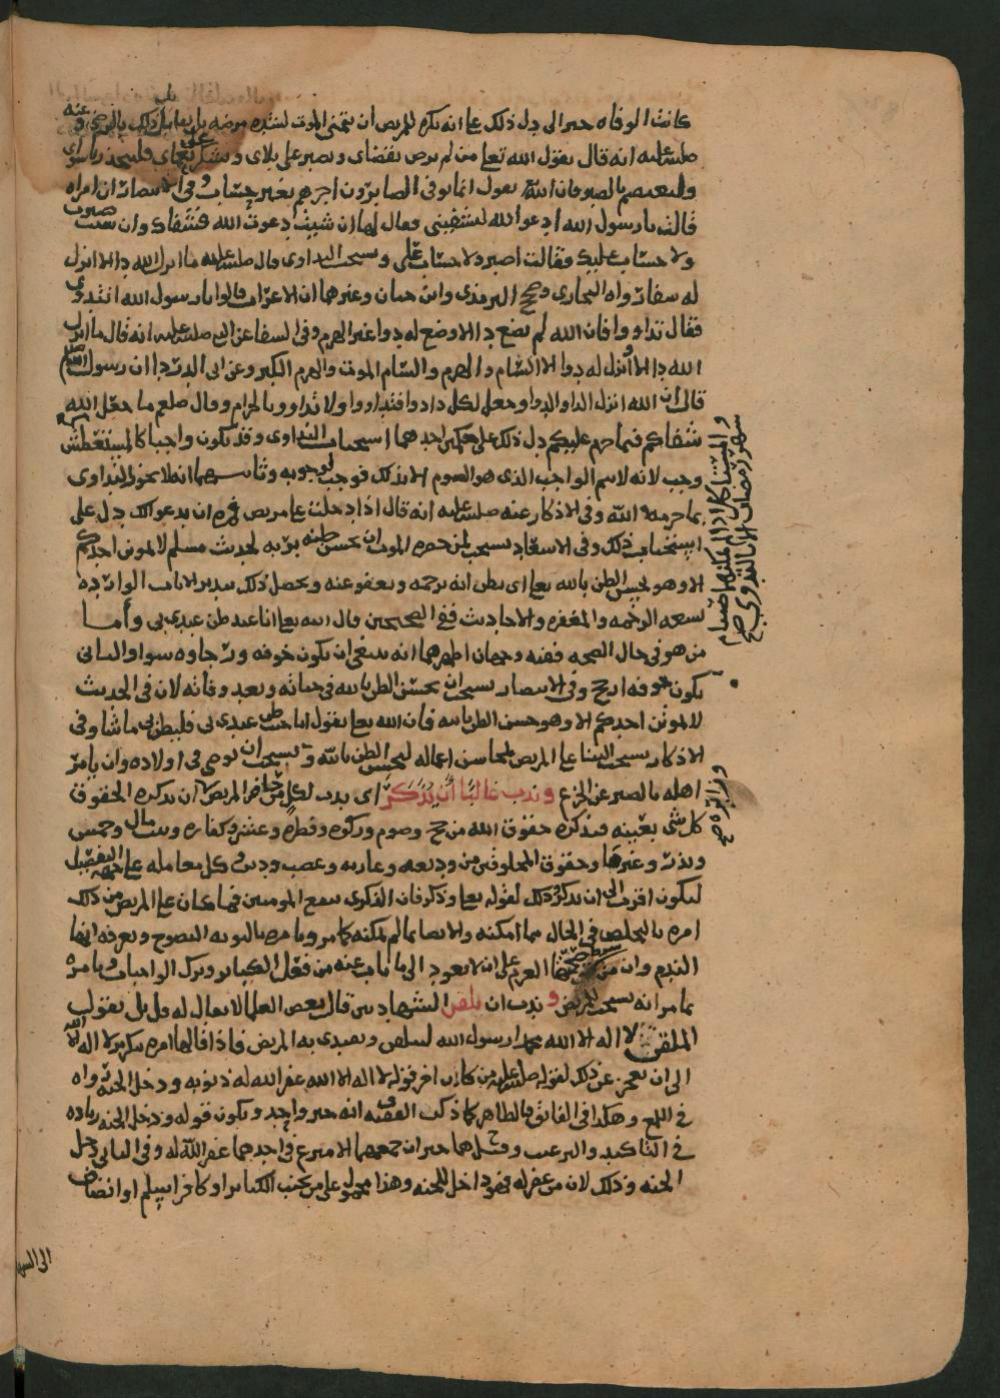 كانت الوفاه خيرا لي دل ذلك على انه يكره للمريض ان يتمنى الموت لشده مرضه بل يقابل ذلك بالرضى
صلى الله عليه انه قال يقول الله تعالى من لم يرض بقضاى ويصبر على بلاى ويشكر نعماى فليتخذ ربا سواى
وليعتصم بالصبر فان الله يقول انما يوفى الصابرون اجرهم بغير حساب وفى الانتصار ان امراه
قالت يا رسول الله ادعوا الله ليشفينى فقال لها ان شيت دعوت الله فشفاك وان شيت صبرت
ولا حساب عليك فقالت اصبر ولا حساب على ويستحب التداوى قال صلى الله عليه ما انزل الله دا الا انزل
له شفا رواه البخارى وصح الترمذى وابن حبان وغيرهما ان الاعراب قالوا يا رسول الله انتداوى
فقال تداووا فان الله لم يضع دا الا وضع له دوا غير الهرم وفى الشفا عن النبى صلى الله عليه انه قال ما انزل
الله دا الا وانزل له دوا الا السام والهرم والسام الموت والهرم الكبر وعن ابى الدردا ان رسول الله
قال ان الله انزل الدا والدوا وجعل لكل دا دوا فتداووا ولا تداووا بالحرام وقال صلعم ما جعل الله
شفاكم فيما حرم عليكم دل ذلك على حكمين احدهما استحباب التداوى وقد يكون واجبا كالمستعطش
وجب لانه لا يتم الواجب الذى هو الصوم الا بذلك فوجب لوجوبه وثانيهما انه لا يجوز التداوى
بما حرمه الله وفى الاذكار عنه صلى الله عليه انه قال اذا دخلت على مريض فمره ان يدعو لك دل على
استحباب ذلك وفى الاسعاد يستحب لمن حضره الموت ان يحسن ظنه بربه لحديث مسلم لا يموتن احدكم
الا وهو يحسن الظن بالله تعالى اى يظن انه يرحمه ويعفو عنه ويحصل ذلك بتدبر الايات الوارده
بسعه الرحمه والمغفره والاحاديث ففى الصحيحين قال الله تعالى انا عند ظن عبدى بى واما
من هو فى حال الصحه ففيه وجهان اظهرهما انه ينبغى ان يكون خوفه ورجاوه سوا والثانى
يكون خوفه ارجح وفى الانتصار يستحب ان يحسن الظن بالله فى حياته وبعد وفاته لان فى الحديث
لا يموتن احدكم الا وهو حسن الظن بالله فان الله تعالى يقول انا عند ظن عبدى بى فليظن بى ما شا وفى
الاذكار يستحب الثنا على المريض بمحاسن اعماله ليحسن الظن بالله ويستحب ان يوصى فى اولاده وان يامر
اهله بالصبر عن الجزع وندب غالبا ان يذكر اى يندب لكل من حاضر المريض ان يذكره الحقوق
كل شى بعينه فيذكره حقوق الله من حج وصوم وزكوه وفطره وعشر وكفاره وبيت مال وخمس
ونذر وغيرها وحقوق المخلوقين من وديعه وعاريه وغصب ودين وكل معامله على جهه التفصيل
ليكون اقرب الى ان يذكر ذلك لقوله تعالى وذكر فان الذكرى تنفع المومنين فما كان على المريض من ذلك
امره بالتخلص فى الحال مما امكنه والايصا بما لم يمكنه كما مر ويامره بالتوبه النصوح ويعرفه انها
الندم وان من صحتها العزم على ان لا يعود الى ما تاب عنه من فعل الكباير وترك الواجبات ويامره
بما مر انه يستحب للمريض وندب ان يلقن الشهادتين قال بعض العلما لا يقال له قل بل يقول
الملقن لا اله الا الله محمد رسول الله ليتلقن ويقتدى به المريض فاذا قالها امره بتكرير لا اله الا الله
الى ان يعجز عن ذلك لقوله صلى الله عليه من كان اخر قوله لا اله الا الله غفر الله له ذنوبه ودخل الجنه رواه
فى اللمع وهكذا فى الفايق فالظاهر كما ذكر الفقيه انه خبر واحد ويكون قوله ودخل الجنه زياده
فى التاكيد والترغيب وقيل هما خبران جمعهما الامير ع فى احدهما غفر الله له وفى الثانى دخل
الجنه وذلك لان من غفر له فهو داخل للجنه وهذا محمول على من يجتنب الكباير او كافر اسلم او انضاف
والمستباكر اذ الم يمكنه صيام
شهر رمضان الا بالتداوى صح
وزايره صح
الى الشها